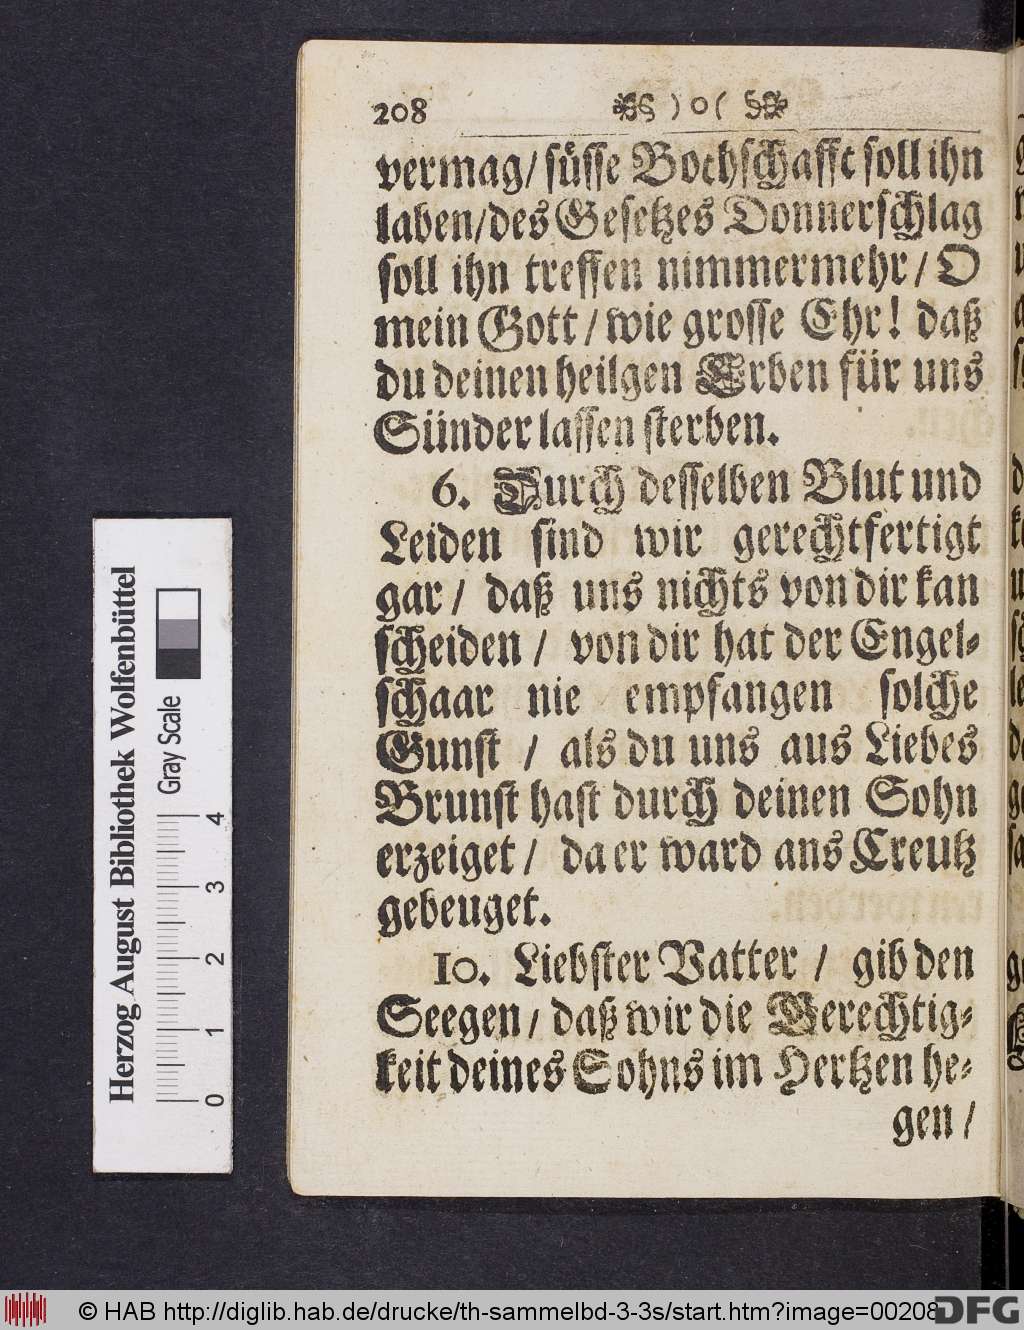 208 ) o (
vermag/ süsse Bothschafft soll ihn
laben/ des Gesetzes Donnerschlag
soll ihn treffen nimmermehr/ O
mein Gott/ wie grosse Ehr! daß
du deinen heilgen Erben für uns
Sünder lassen sterben.
6. Durch desselben Blut und
Leiden sind wir gerechtfertigt
gar/ daß uns nichts von dir kan
scheiden/ von dir hat der Engel-
schaar nie empfangen solche
Gunst / als du uns aus Liebes
Brunst hast durch deinen Sohn
erzeiget/ da er ward ans Creutz
gebeuget.
10. Liebster Vatter / gib den
Seegen/ daß wir die Gerechtig-
keit deines Sohns im Hertzen he-
gen /
Herzog August Bibliothek Wolfenbüttel
Gray Scale
0 1 2 3 4
© HAB http://diglib.hab.de/drucke/th-sammelbd-3-3s/start.htm?image=00208
DFG